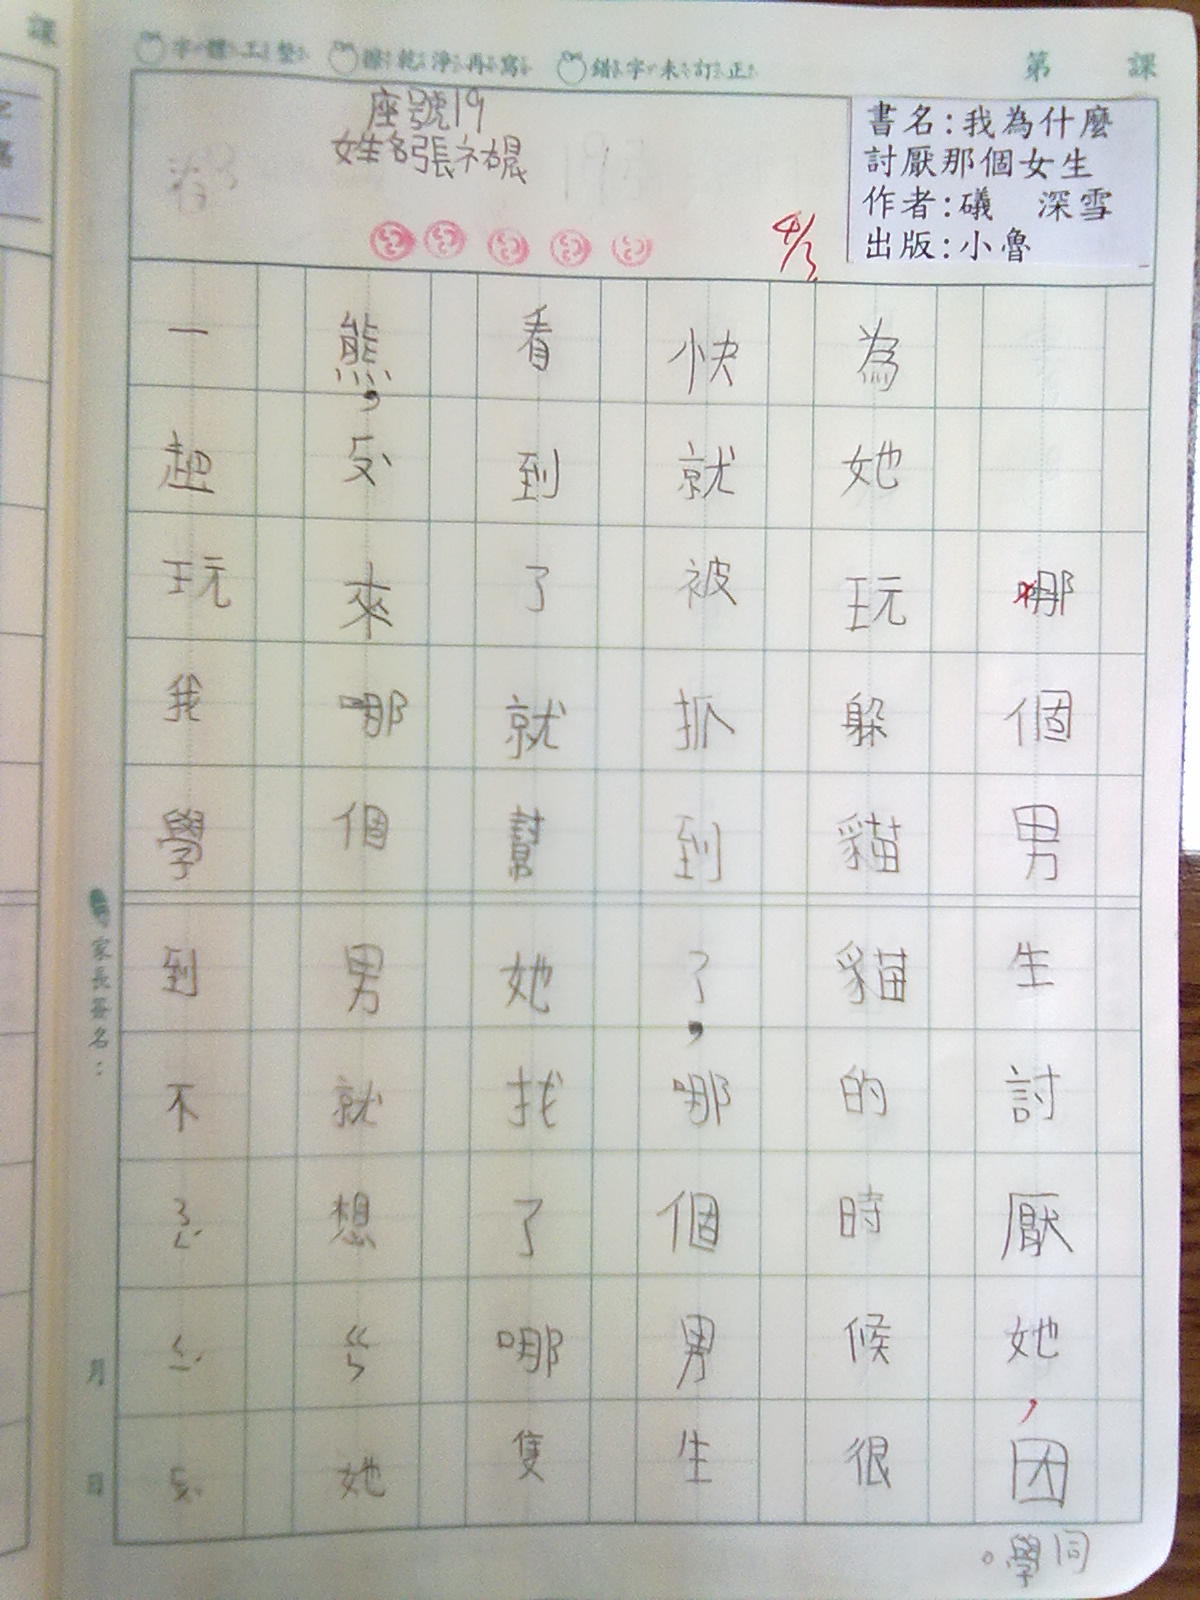 字體工整 擦乾淨再寫 錯字未訂正
第 課
座號19
姓名張
4/3
書名:我為什麼
討厭那個女生
作者:礒 深雪
出版:小魯
哪個男生討厭她,因
為她玩躲貓貓的時候很
快就被抓到了,哪個男生
看到了就幫她找了哪隻
熊,ㄏㄡˋ來哪個男就想ㄍㄣ她
一起玩我學到不
同學。
家長簽名:
月 日
課